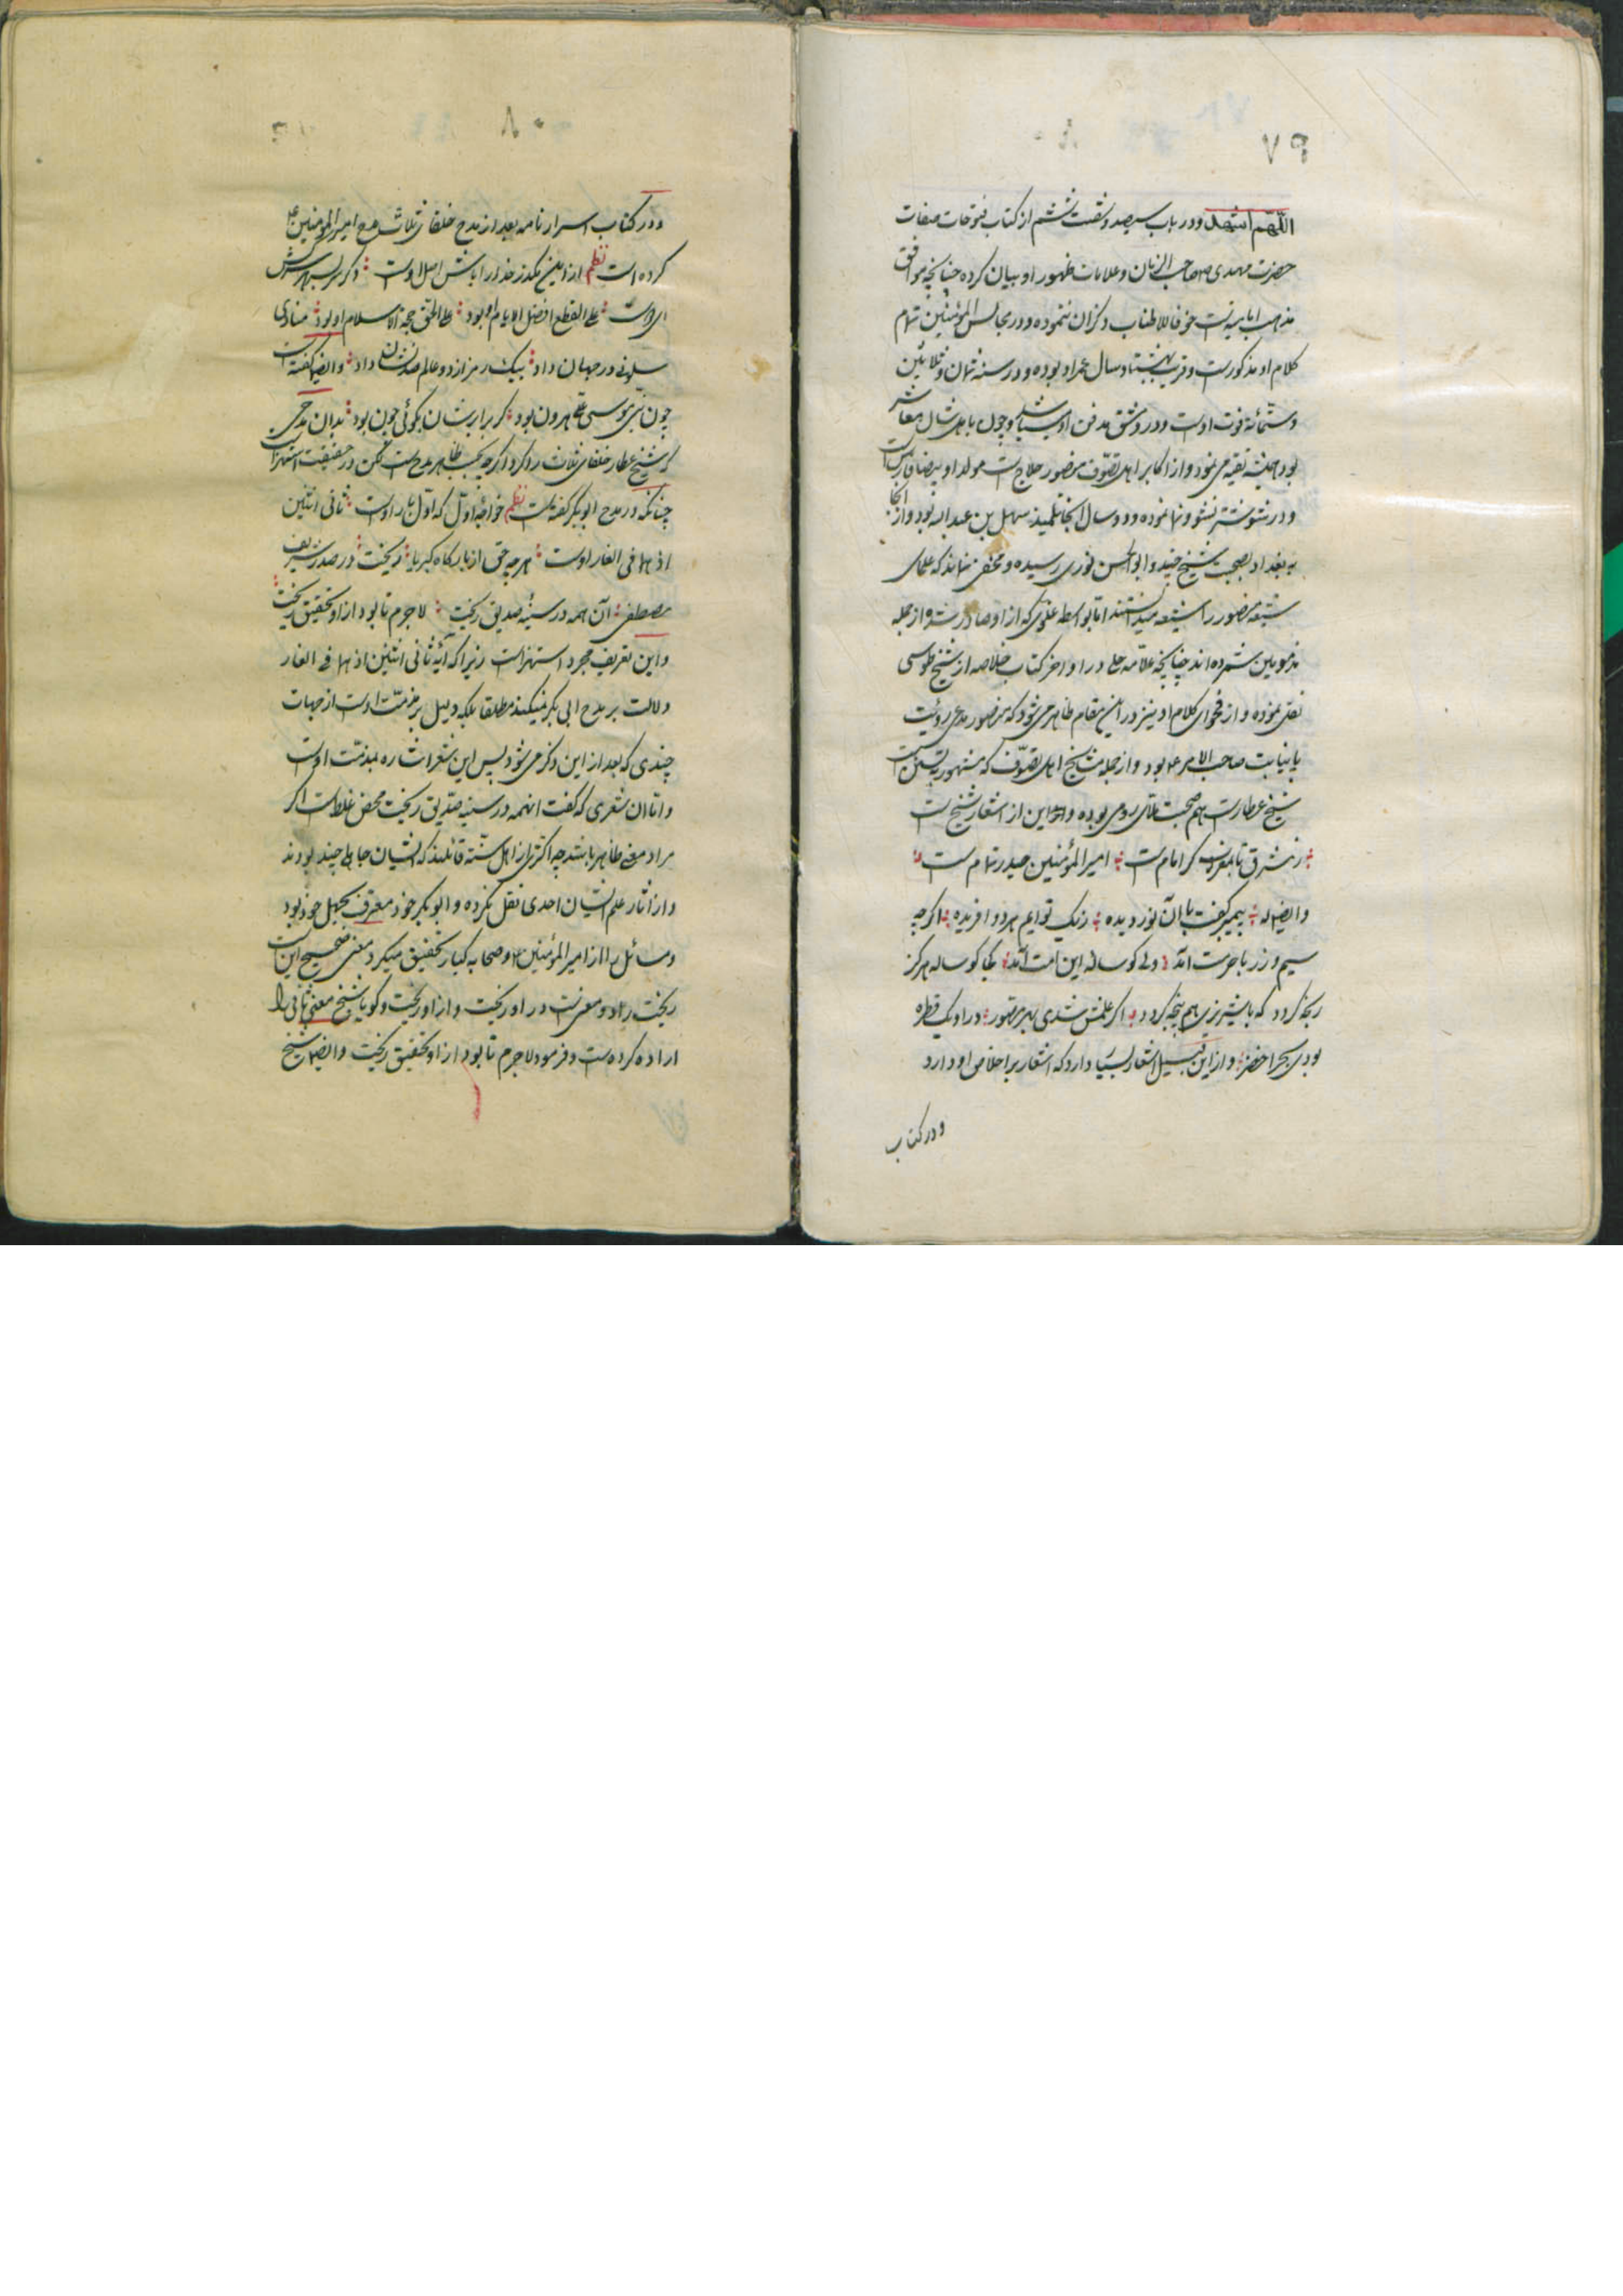 ٧٩
اللّهم اشهد و در باب سیصد و شصت ششم از کتاب فتوحات صفات
حضرت مهدی صاحب الزمان و علامات ظهور او بیان کرده چنانچه موافق
مذهب امامیه است خوفا للاطناب ذکر آن ننموده و در مجالس المؤمنین تمام
کلام او مذکور است و قریب بهشتاد سال عمر او بوده و در سنه ثمان و ثلاثین
و ستمائه فوت اوست و در دمشق مدفن او چون با اهل شان معاشر
بود همیشه تقیه می نمود و از اکابر اهل تصوّف منصور حلاج است مولد او بیضا فارس است
و در شوشتر نشو و نما نموده و دو سال انجا تلمیذ سهل بن عبد الله بود و از انجا
به بغداد بصحبت شیخ جنید و ابو الحسن نوری رسیده و مخفی نماند که علمای
شیعه منصور را شیعه میدانستند اما بواسطه غلوی که از او صادر شده از جمله
مذمومین شمرده اند چنانچه علاّمه حلی در اواخر کتاب خلاصه از شیخ طوسی
نقل نموده و از فحوای کلام او نیز در این مقام ظاهر می شود که منصور مدعی رؤیت
یا نیابت صاحب الامر بود و از جمله مشایخ اهل تصوّف که مشهور به تسنن است
شیخ عطار است هم صحبت ملای رومی بوده و این از اشعار شیخ است
ز مشرق تا بمغرب گر امام است امیر المؤمنین حیدر تمام است
و ایضا له پیمبر گفت با آن نور دیده ز یک نوریم هر دو افریده اگرچه
سیم و زر با حرمت آمد ولی کوساله این امت آمد کجا کوساله هرگز
رنجه گردد که با شیر نری هم پنجه گردد اگر علمش شدی بحر مصور در او یک قطره
بودی بحر اخضر و از این قبیل اشعار بسیار دارد که اشعار بر اخلاص او دارد
و در کتاب
٨٠
و در کتاب اسرار نامه بعد از مدح خلفای ثلاث مدح امیر المؤمنین
کرده است نظم
است علی القطع افضل الایام او بود علی الحق حجة الاسلام او بود منادی
سلونی در جهان داد بیک رمز از دو عالم صد نشان داد و ایضا گفته است
چون نبی موسی علی هرون بود گر برابرشان بگوئی چون بود بدان مدحی
که شیخ عطار خلفای ثلاث را کرد اگرچه بحسب ظاهر مدح است لکن در حقیقت استهزا است
چنانکه در مدح ابو بکر گفته است نظم خواجه اوّل که اوّل یار اوست ثانی اثنین
اذ هما فی الغار اوست هرچه حق از بارگاه کبریا ریخت در صدر شریف
مصطفی آن همه در سینه صدیق ریخت لاجرم تا بود از او تحقیق ریخت
و این تعریف مجرد استهزاست زیرا که آیه ثانی اثنین اذ هما فی الغار
دلالت بر مدح ابی بکر نمیکند مطلقا بلکه دلیل بر مذمّت اوست از جهات
چندی که بعد از این ذکر می شود پس این شعر اشاره بمذمّت اوست
و اما ان شعری که گفت انهمه در سینه صدّیق ریخت محض غلط است اگر
مراد معنی ظاهر باشد چه اکثری از اهل سنّة قائلند که ایشان جاهلی چند بودند
و از آثار علم ایشان احدی نقل نکرده و ابو بکر خود معترف بجهل خود بود
و مسائل را از امیر المؤمنین و صحابه کبار تحقیق میکرد معنی صحیح این است
ریخت در او معرفت در او ریخت و از او ریخت و گویا شیخ معنی ثانی را
اراده کرده است و فرمود لاجرم تا بود از او تحقیق ریخت و ایضا شیخ